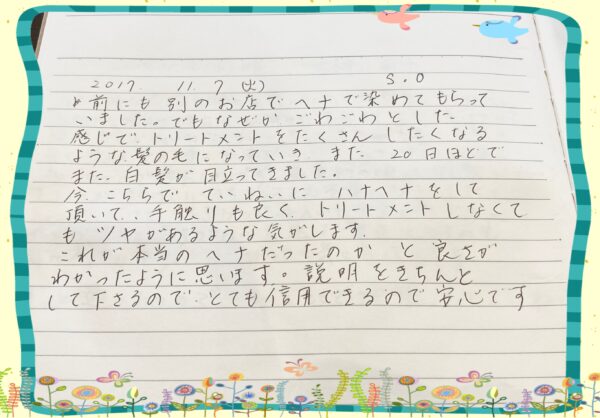 2017 11.7 (火) S.O
以前にも別のお店でヘナで染めてもらって
いました。でもなぜかごわごわとした
感じで、トリートメントをたくさんしたくなる
ような髪の毛になっていき、また、20日ほどで
また、白髪が目立ってきました。
今、こちらでていねいにハナヘナをして
頂いて、手触りも良く、トリートメントしなくて
もツヤがあるような気がします。
これが本当のヘナだったのかと良さが
わかったように思います。説明をきちんと
して下さるので、とても信用できるので安心です